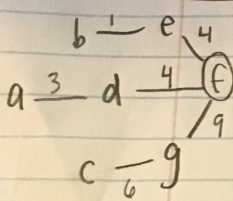 b 1 e 4
a 3 d 4 f
9
c 6 g